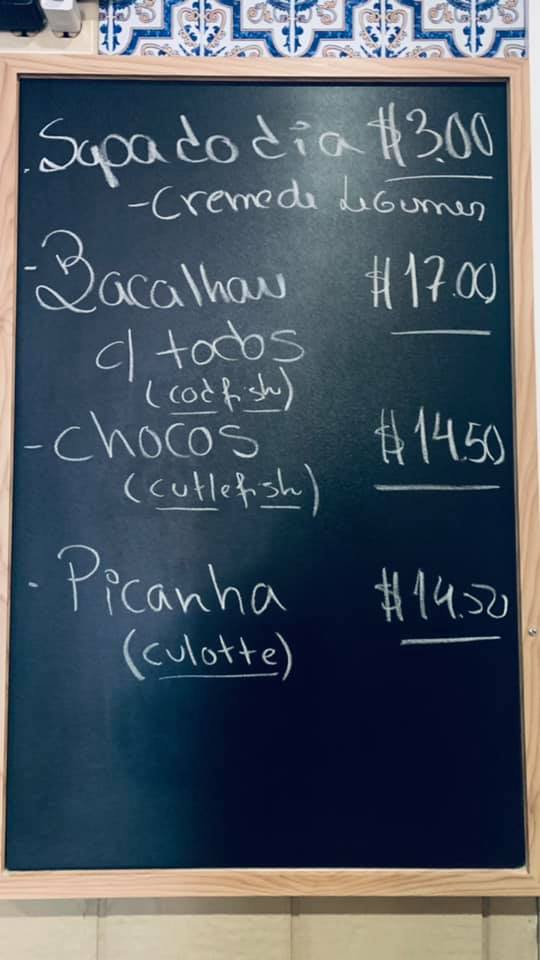 . Sopa do dia $3.00
- Creme de Legumes
- Bacalhau $17.00
c/ todos
(codfish)
- Chocos $14.50
(cuttlefish)
. Picanha $14.50
(culotte)